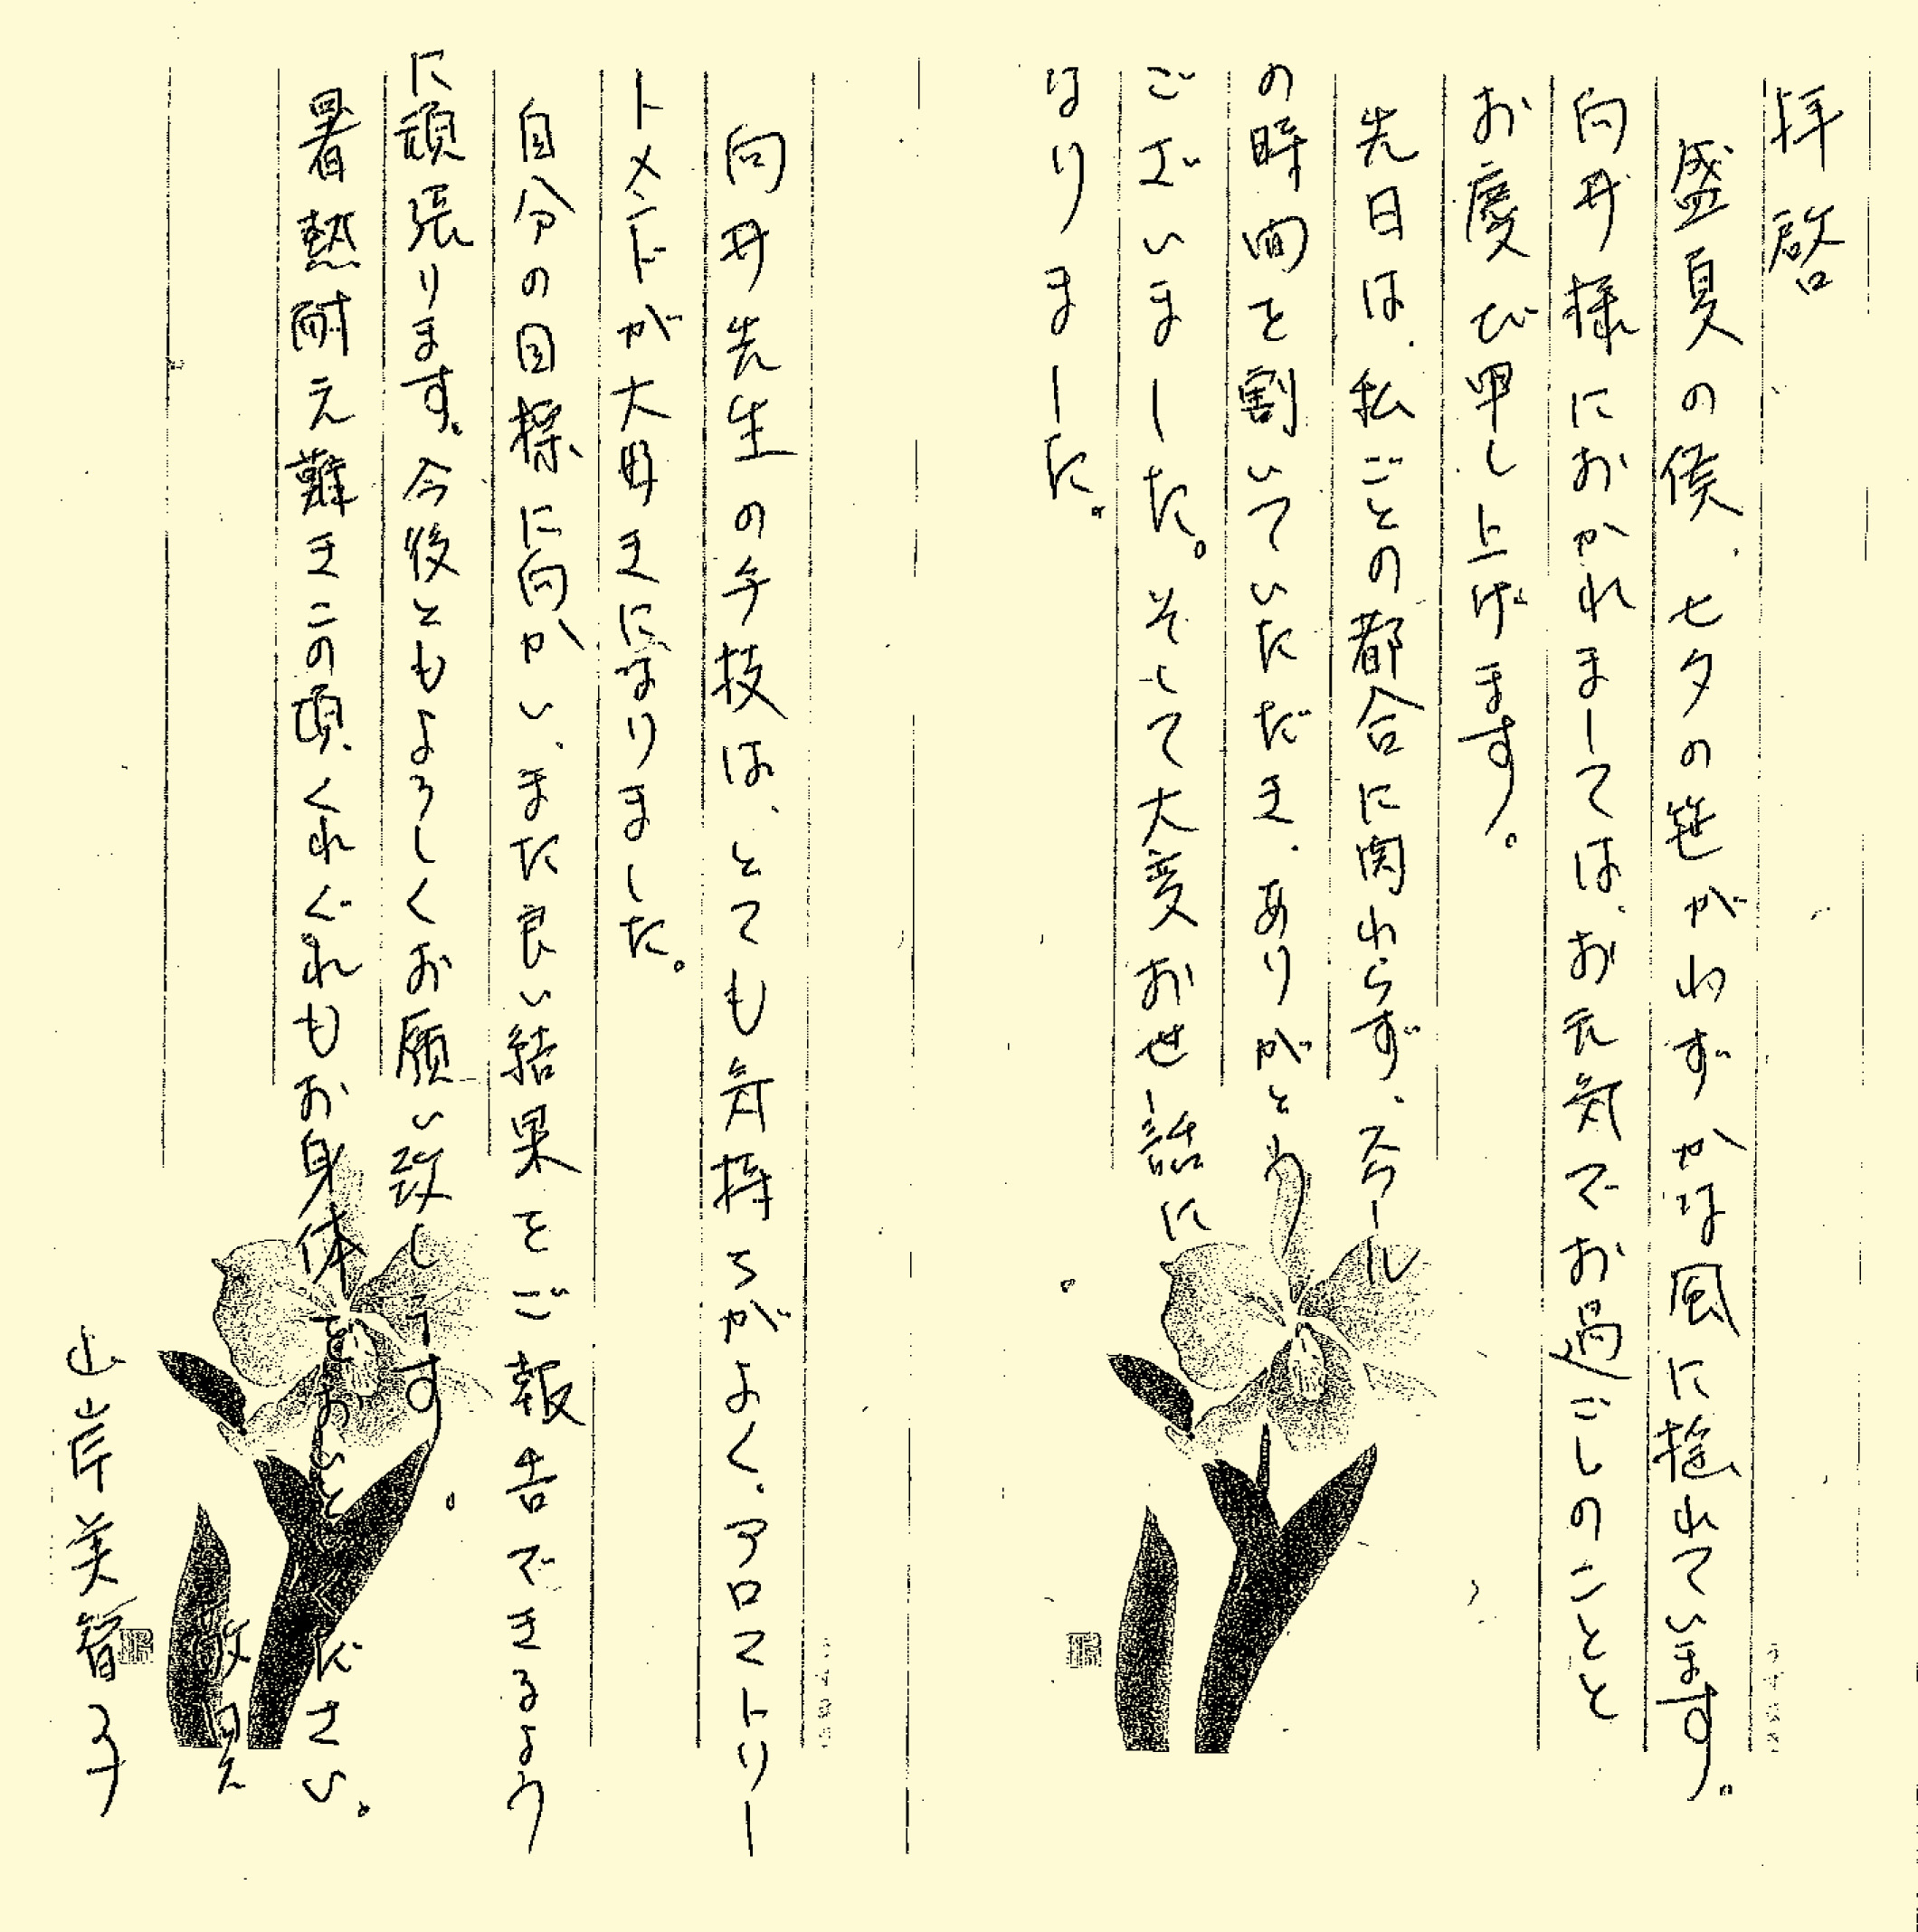 拝啓
盛夏の候、七夕の笹がわずかな風に揺れています。
向井様におかれましては、お元気でお過ごしのことと
お慶び申し上げます。
先日は、私ごとの都合に関わらず、スクール
の時間を割いていただき、ありがとう
ございました。そして大変お世話に
なりました。
向井先生の手技は、とても気持ちがよく、アロマトリー
トメントが大好きになりました。
自分の目標に向かい、また良い結果をご報告できるよう
に頑張ります。今後ともよろしくお願い致します。
暑熱耐え難きこの頃、くれぐれもお身体をおいと ださい。
敬具
山岸美智子